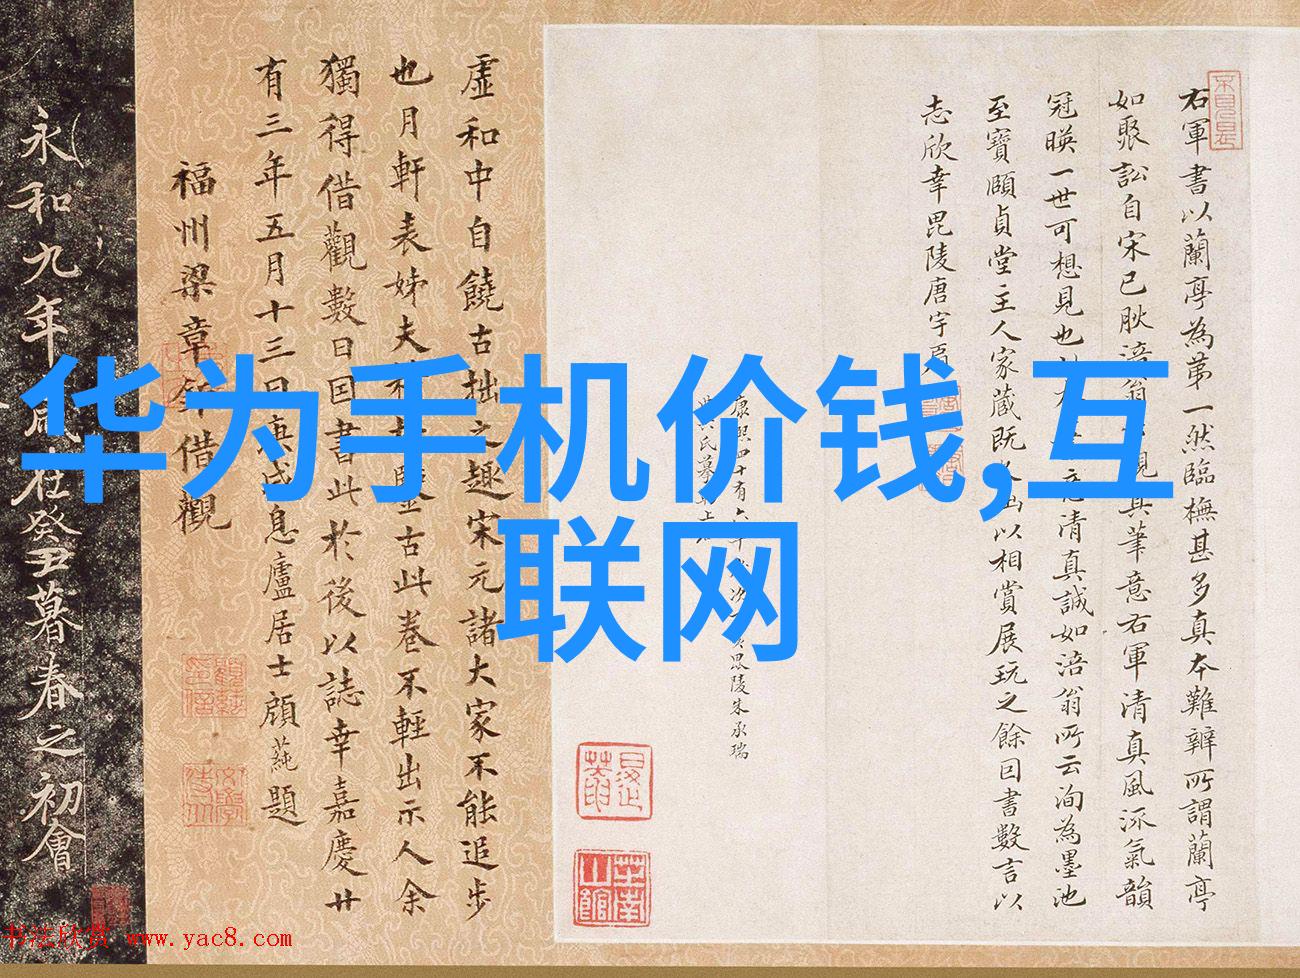 华为手机价钱,互
联网
右軍書以蘭亭為第一然臨橅甚多真本難辨所謂蘭亭
如聚訟自宋已耿涪翁其筆意右軍清真風流氣韻
冠暎一世可想見也意清真誠如涪翁所云洵為墨池
至寶頤貞堂主人家蔵既出以相賞展玩之餘因書數言以
志欣幸毘陵唐宇肩
康熙四十有六年次毘陵朱承瑞
虛和中自饒古拙之趣宋元諸大家不能追步
也月軒表姊夫古此卷不輕出示人余
獨得借觀數日因書此於後以誌幸嘉慶廿
有三年五月十三日庚戌息廬居士顧蒓題
福州梁章鉅借觀
永和九年歲在癸丑暮春之初會
书法欣赏 www.yac8.com